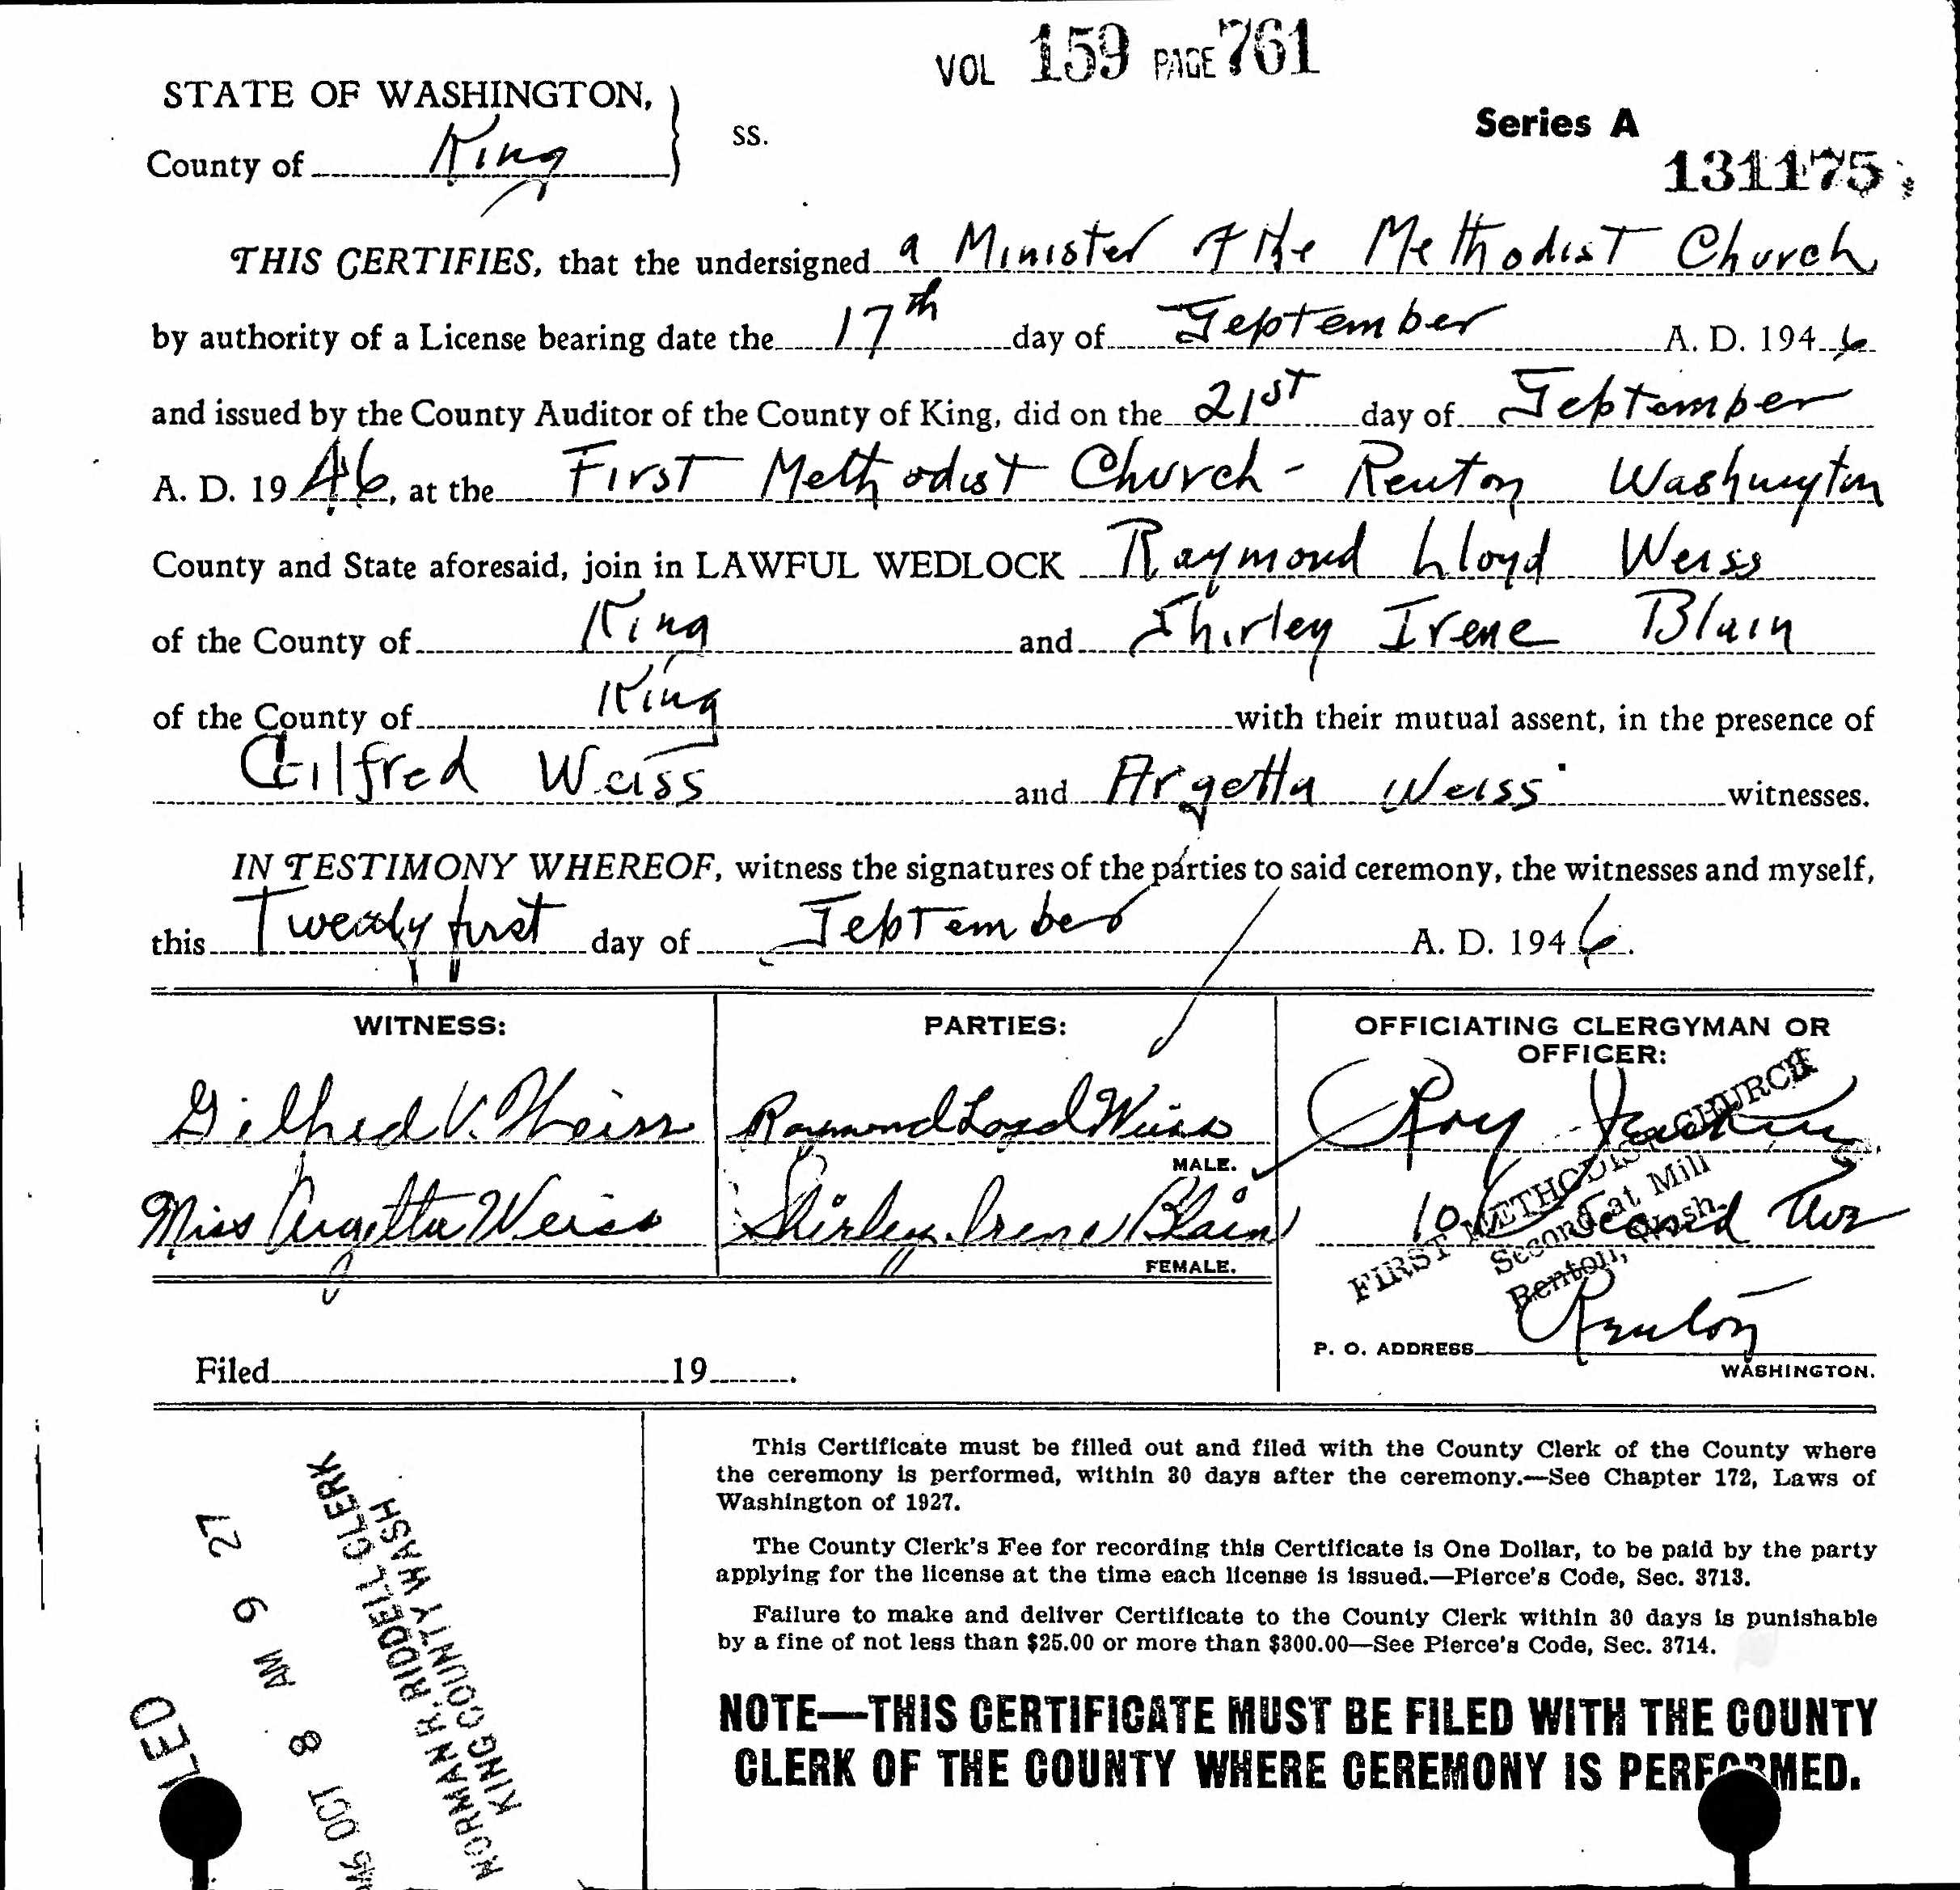 VOL 159 PAGE 761
STATE OF WASHINGTON,
County of King
ss.
Series A
131175
THIS CERTIFIES, that the undersigned a Minister of the Methodist Church
by authority of a License bearing date the 17th day of September A. D. 1946
and issued by the County Auditor of the County of King, did on the 21st day of September
A. D. 1946, at the First Methodist Church - Renton Washington
County and State aforesaid, join in LAWFUL WEDLOCK Raymond Lloyd Weiss
of the County of King and Shirley Irene Blain
of the County of King with their mutual assent, in the presence of
Gilfred Weiss and Argetta Weiss witnesses.
IN TESTIMONY WHEREOF, witness the signatures of the parties to said ceremony, the witnesses and myself,
this Twenty first day of September A. D. 1946.
WITNESS:
Gilfred V. Weiss
Miss Argetta Weiss
PARTIES:
Raymond Loyd Weiss
MALE.
Shirley Irene Blain
FEMALE.
OFFICIATING CLERGYMAN OR
OFFICER:
Roy
Second Ave
FIRST METHODIST CHURCH
Second at Mill
Renton, Wash.
Renton
P. O. ADDRESS
WASHINGTON.
Filed 19 .
This Certificate must be filled out and filed with the County Clerk of the County where
the ceremony is performed, within 30 days after the ceremony.—See Chapter 172, Laws of
Washington of 1927.
The County Clerk's Fee for recording this Certificate is One Dollar, to be paid by the party
applying for the license at the time each license is issued.—Pierce's Code, Sec. 3713.
Failure to make and deliver Certificate to the County Clerk within 30 days is punishable
by a fine of not less than $25.00 or more than $300.00—See Pierce's Code, Sec. 3714.
NOTE—THIS CERTIFICATE MUST BE FILED WITH THE COUNTY
CLERK OF THE COUNTY WHERE CEREMONY IS PERFORMED.
LED
46 OCT 8 AM 9 27
NORMAN R. RIDDELL CLERK
KING COUNTY WASH